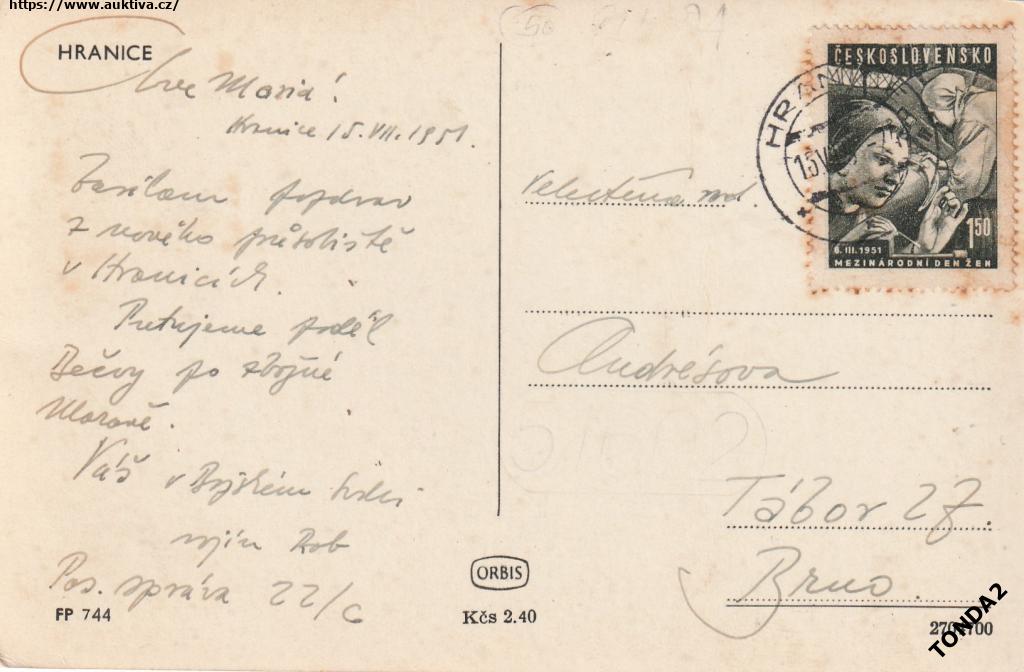 https://www.auktiva.cz/
HRANICE
Ave Maria!
Hranice 15.VII.1951.
Zasílam pozdrav
z nového působiště
v Hranicích.
Putujeme podél
Bečvy po zbožné
Moravě.
Váš v
Rob
Pos. správa 22/c
FP 744
ORBIS
Kčs 2.40
ČESKOSLOVENSKO
1.50
8.III.1951
MEZINÁRODNÍ DEN ŽEN
Velectěná
Andrésova
Tábor 27.
Brno
TONDA2